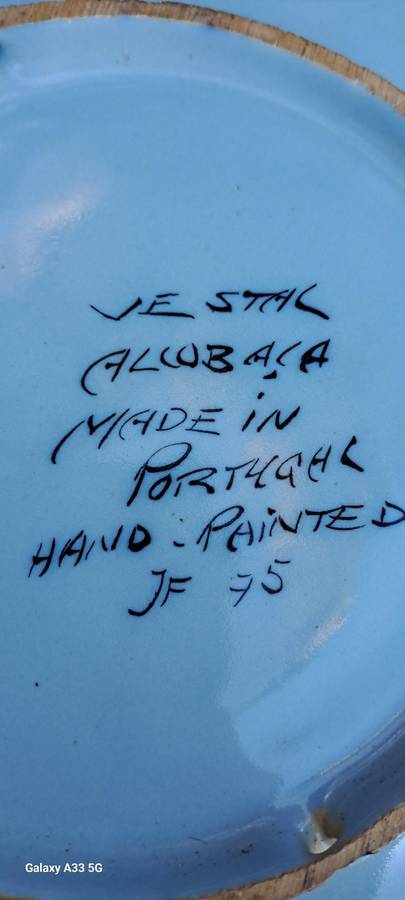 VESTAL
ALCOBAÇA
MADE IN
PORTUGAL
HAND-PAINTED
JF 75
Galaxy A33 5G